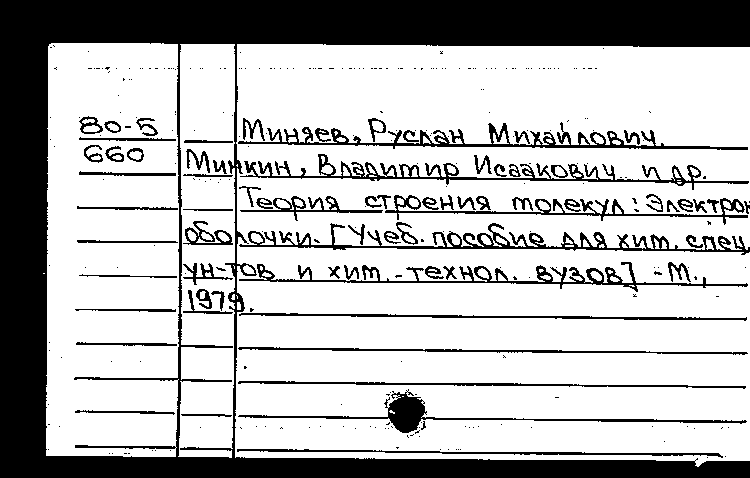 80-5 Миняев, Руслан Михайлович.
660 Минкин, Владимир Исаакович и др.
Теория строения молекул: Электрон
оболочки. [Учеб. пособие для хим. спец.
ун-тов и хим.-технол. вузов] - М.,
1979.